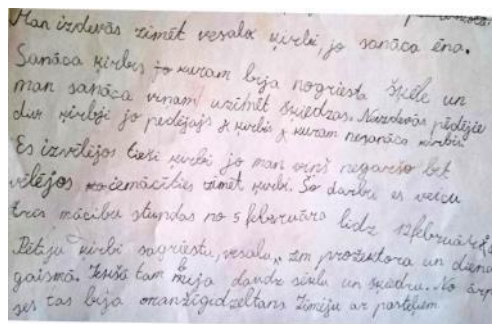 Man izdevās zīmēt veselu ķirbi, jo sanāca ēna.
Sanāca ķirbis jo kuram bija nogriesta šķēle un
man sanāca viņam uzzīmēt šķiedzas. Neizdevās pēdējie
divi ķirbji jo pēdējajs ķirbis kuram nesanāca ķirbis
Es izvēlējos tieši ķirbi jo man viņš negaršo bet
vēlējos iemācīties zīmēt ķirbi. Šo darbu es veicu
trīs mācību stundas no 5 februāra līdz 12 februāri
Pētiju ķirbi sagrieztu, veselu, zem prožektora un dienas
gaismā. Iekšā tam bija daudz sēklu un šķiedru. No ārp
ses tas bija oranžīgidzeltans Zīmēju ar pasteļiem